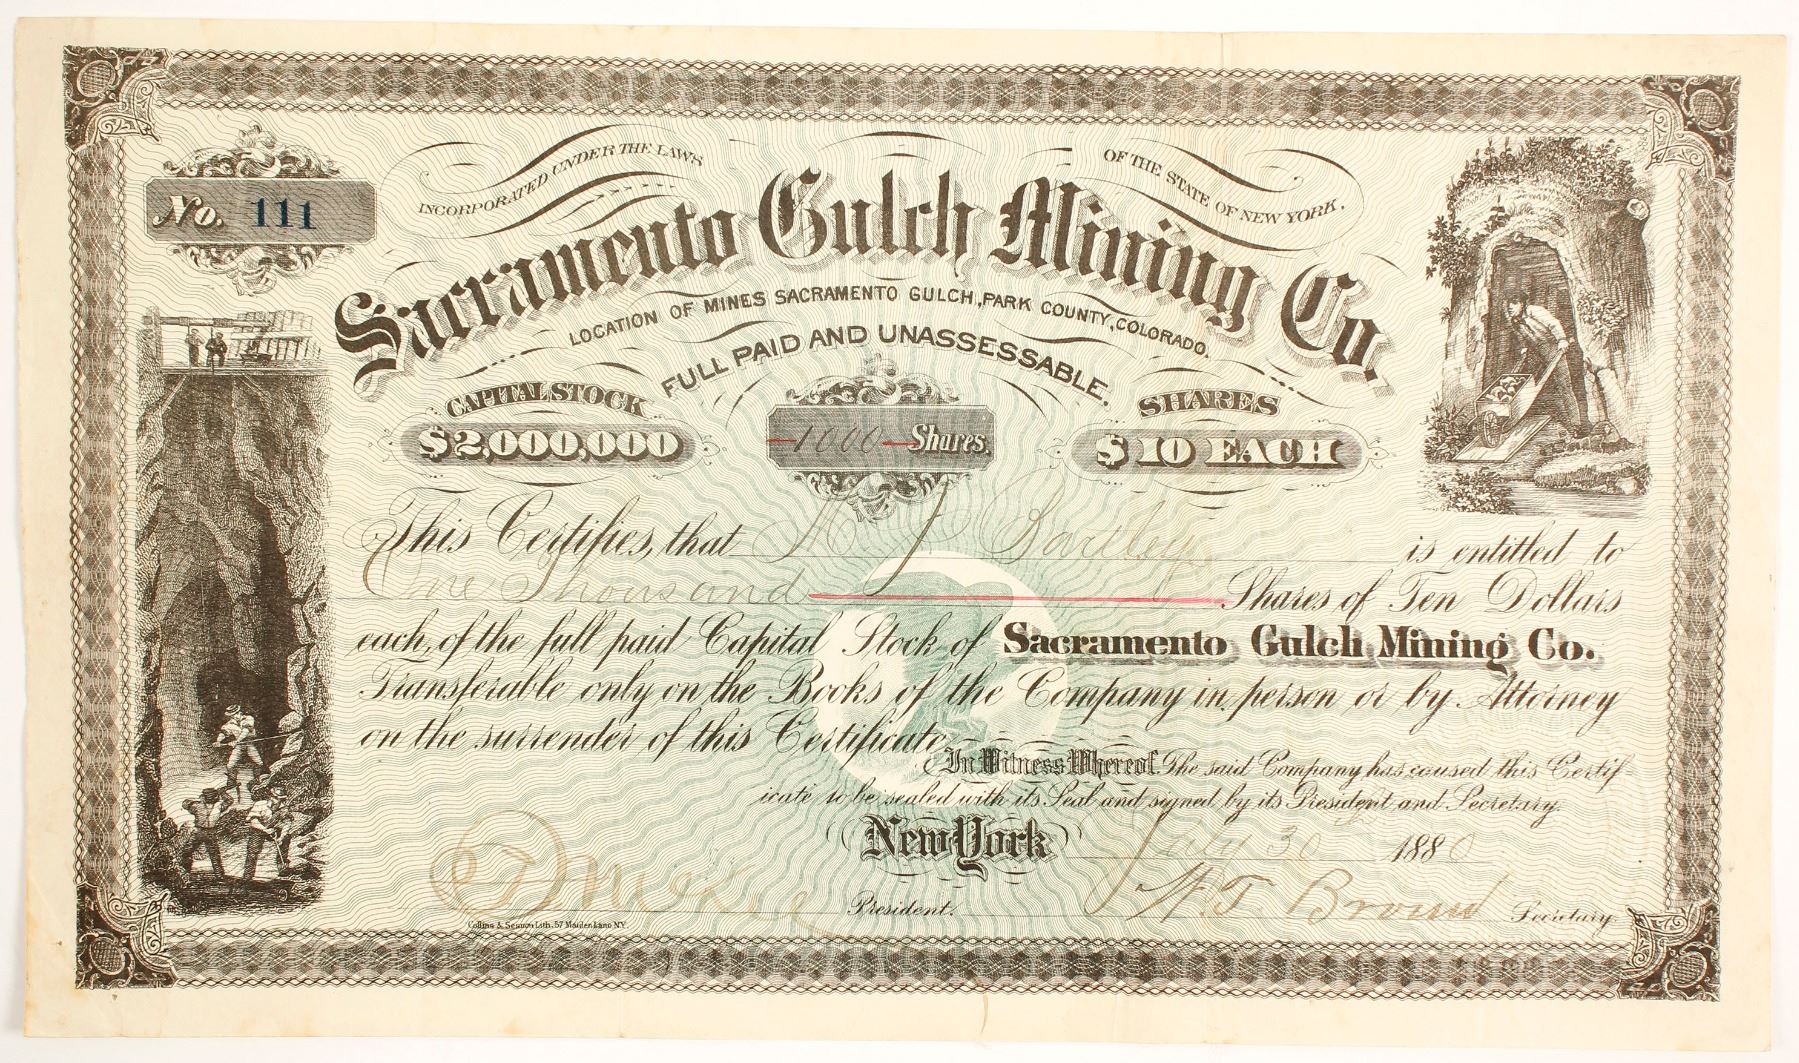 No. 111
INCORPORATED UNDER THE LAWS OF THE STATE OF NEW YORK.
Sacramento Gulch Mining Co.
LOCATION OF MINES SACRAMENTO GULCH, PARK COUNTY, COLORADO.
FULL PAID AND UNASSESSABLE.
CAPITAL STOCK
$2,000,000
1000 Shares.
SHARES
$10 EACH
This Certifies, that Bartley is entitled to
One Thousand Shares of Ten Dollars
each, of the full paid Capital Stock of Sacramento Gulch Mining Co.
Transferable only on the Books of the Company in person or by Attorney
on the surrender of this Certificate
In Witness Whereof. The said Company has caused this Certif-
icate to be sealed with its Seal and signed by its President and Secretary.
New York July 30 1880
President.
Secretary.
Collins & Sesnon Lith. 57 Maiden Lane NY.